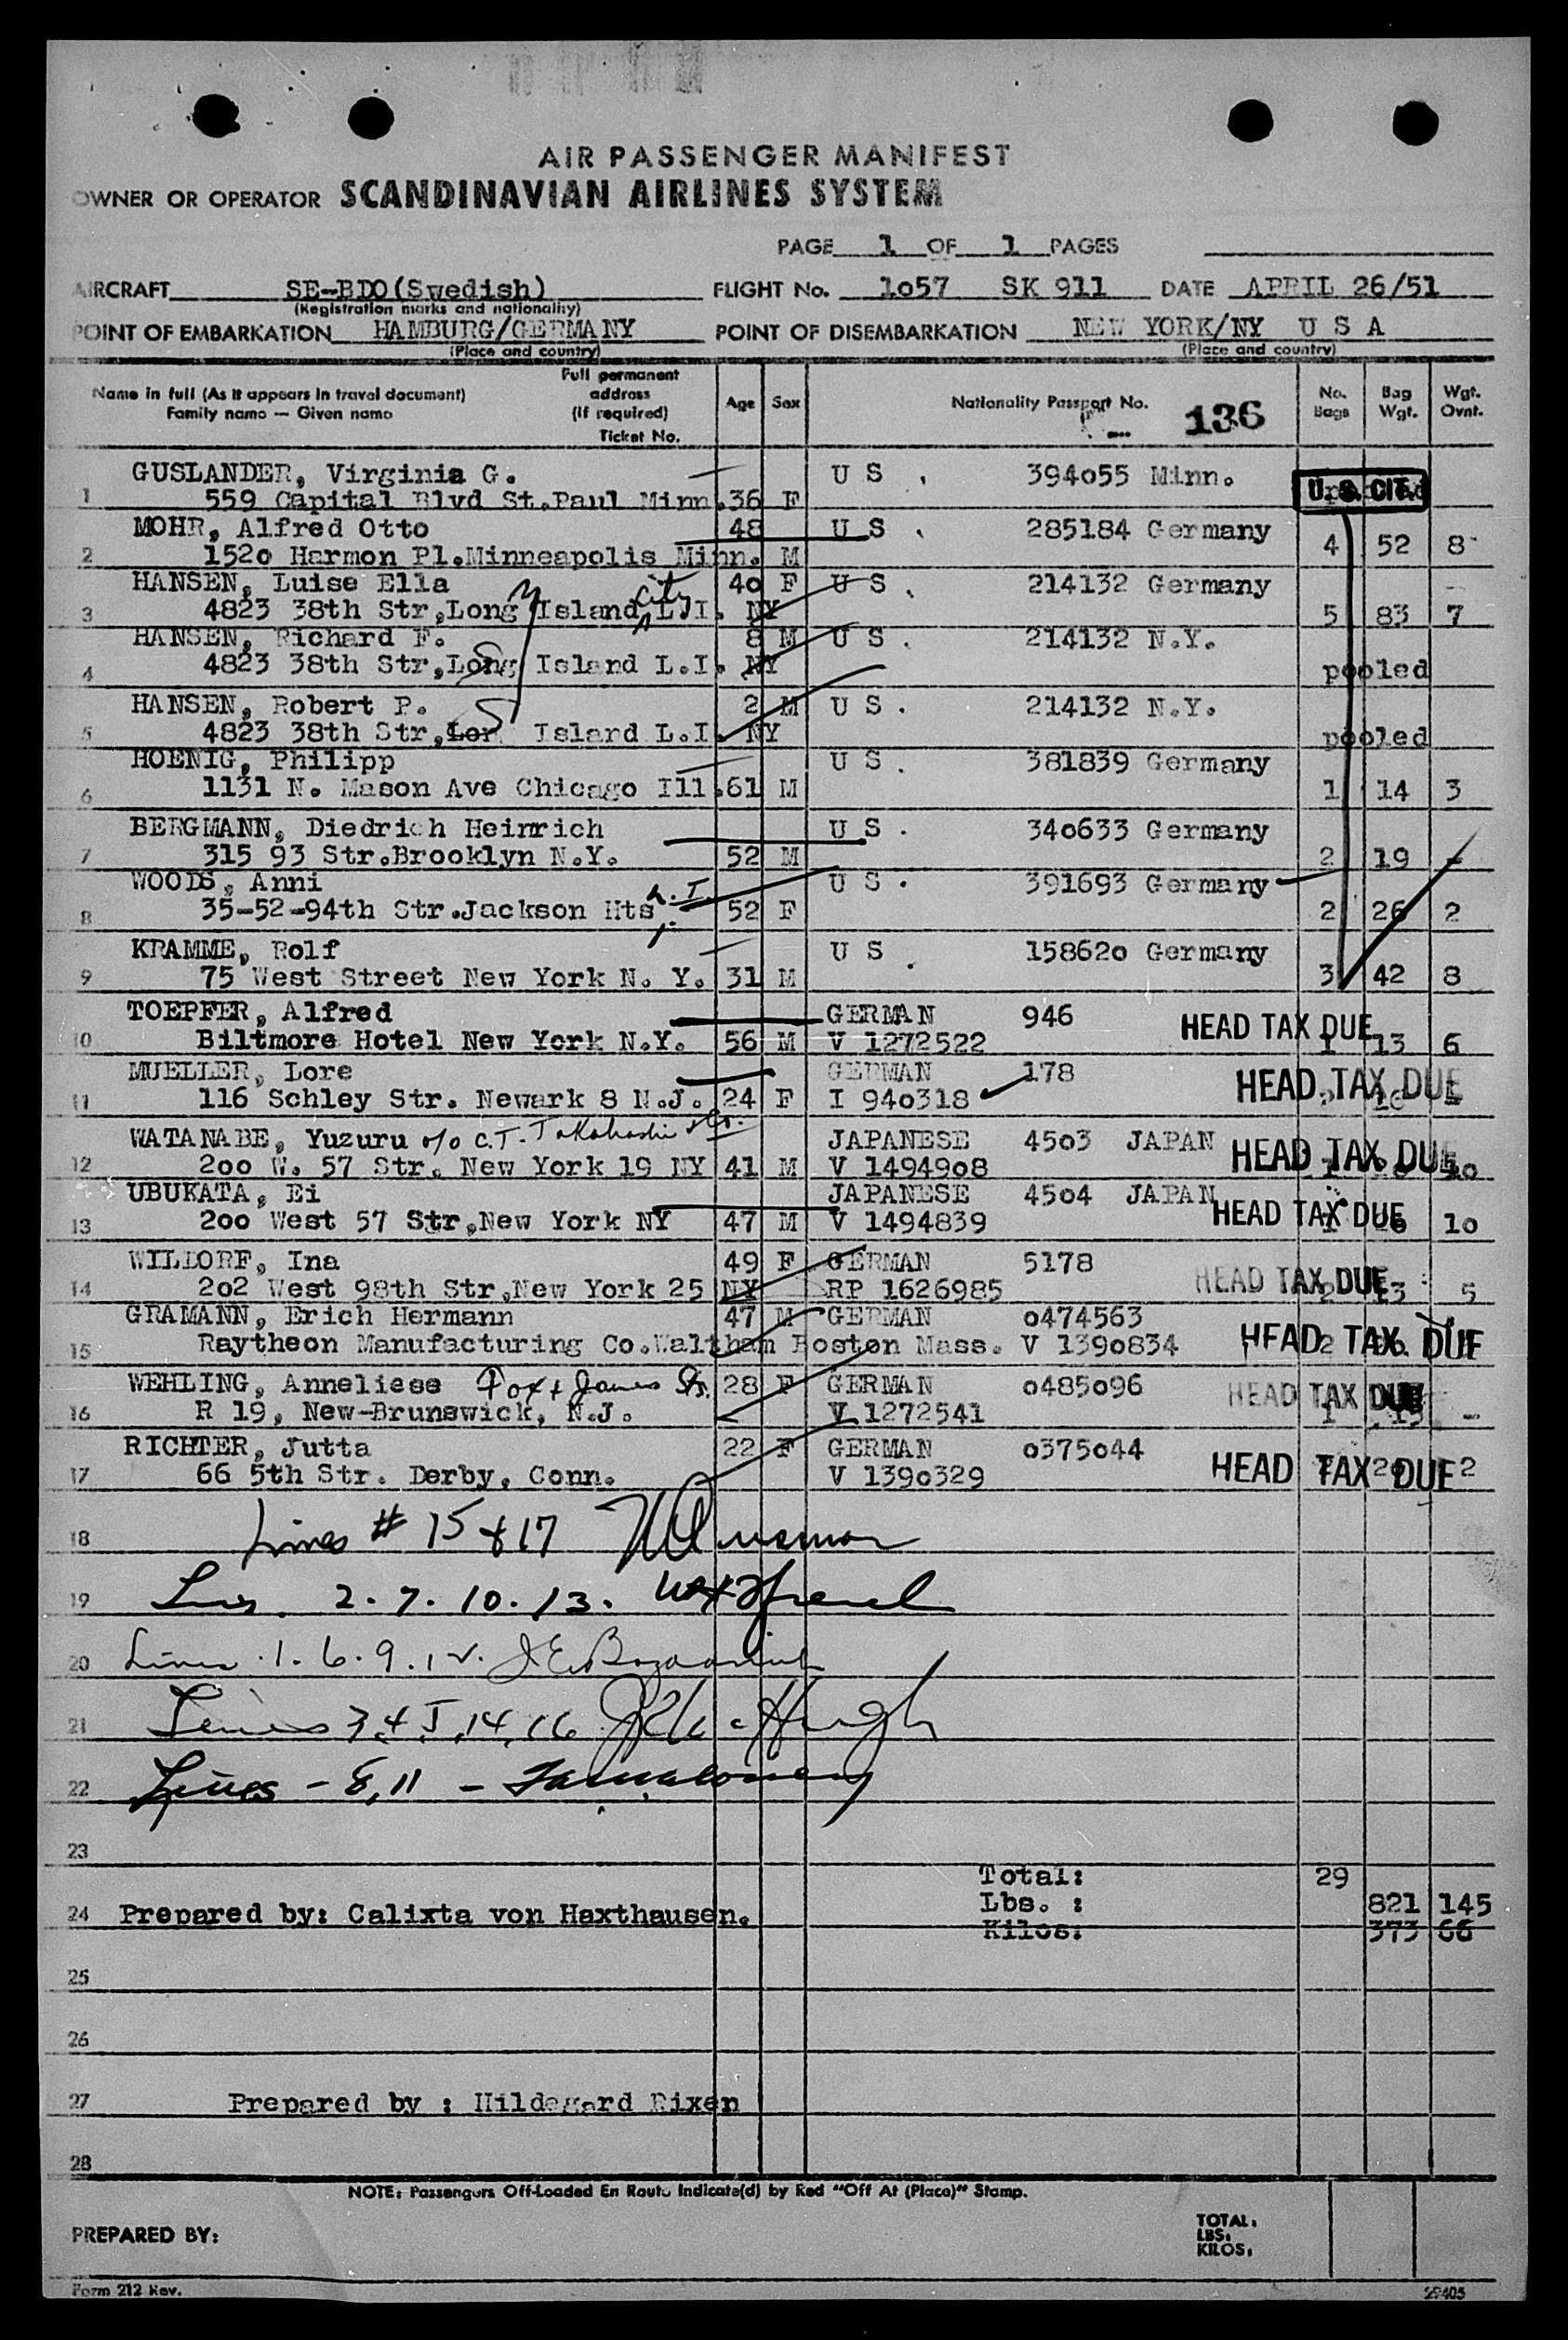 AIR PASSENGER MANIFEST
OWNER OR OPERATOR SCANDINAVIAN AIRLINES SYSTEM
PAGE 1 OF 1 PAGES
AIRCRAFT SE-BDO(Swedish) FLIGHT No. 1o57 SK 911 DATE APRIL 26/51
(Registration marks and nationality)
POINT OF EMBARKATION HAMBURG/GERMANY POINT OF DISEMBARKATION NEW YORK/NY U S A
(Place and country) (Place and country)
Name in full (As it appears in travel document) Family name — Given name Full permanent address (If required) Ticket No. Age Sex Nationality Passport No. 136 No. Bags Bag Wgt. Wgt. Ovnt.
GUSLANDER, Virginia G. U S . 394o55 Minn.
1 559 Capital Blvd St.Paul Minn. 36 F U.S. CIT.
MOHR, Alfred Otto 48 U S . 285184 Germany
2 152o Harmon Pl.Minneapolis Minn. M 4 52 8
HANSEN, Luise Ella 4o F U S . 214132 Germany
3 4823 38th Str,Long Island City L.I. NY 5 83 7
HANSEN, Richard F. 8 M U S . 214132 N.Y.
4 4823 38th Str,Long Island L.I. NY pooled
HANSEN, Robert P. 2 M U S . 214132 N.Y.
5 4823 38th Str,Lon Island L.I. NY pooled
HOENIG, Philipp U S . 381839 Germany
6 1131 N. Mason Ave Chicago Ill. 61 M 1 14 3
BERGMANN, Diedrich Heinrich U S . 34o633 Germany
7 315 93 Str.Brooklyn N.Y. 52 M 2 19 -
WOODS, Anni U S . 391693 Germany
8 35-52-94th Str.Jackson Hts L.I. 52 F 2 26 2
KRAMME, Rolf U S . 15862o Germany
9 75 West Street New York N. Y. 31 M 3 42 8
TOEPFER, Alfred GERMAN 946
10 Biltmore Hotel New York N.Y. 56 M V 1272522 HEAD TAX DUE 1 13 6
MUELLER, Lore GERMAN 178
11 116 Schley Str. Newark 8 N.J. 24 F I 94o318 HEAD TAX DUE
WATANABE, Yuzuru c/o C.T. Takahashi & Co. JAPANESE 45o3 JAPAN
12 2oo W. 57 Str. New York 19 NY 41 M V 14949o8 HEAD TAX DUE
UBUKATA, Ei JAPANESE 45o4 JAPAN
13 2oo West 57 Str,New York NY 47 M V 1494839 HEAD TAX DUE 1o
WILDORF, Ina 49 F GERMAN 5178
14 2o2 West 98th Str,New York 25 NY RP 1626985 HEAD TAX DUE 5
GRAMANN, Erich Hermann 47 M GERMAN o474563
15 Raytheon Manufacturing Co.Waltham Boston Mass. V 139o834 HEAD TAX DUE
WEHLING, Anneliese 28 F GERMAN o485o96
16 R 19, New-Brunswick, N.J. V 1272541 HEAD TAX DUE 1 13 -
RICHTER, Jutta 22 F GERMAN o375o44
17 66 5th Str. Derby, Conn. V 139o329 HEAD TAX DUE 2
18 Lines # 15 & 17
19 Lines 2. 7. 10. 13.
20 Lines .1. 6. 9. 12.
21 Lines 3, 4, 5, 14, 16
22 Lines - 8, 11 -
23
Total: 29
Lbs. : 821 145
24 Prepared by: Calixta von Haxthausen.
Kilos: 373 66
25
26
27 Prepared by : Hildegard Rixen
28
NOTE: Passengers Off-Loaded En Route Indicate(d) by Red "Off At (Place)" Stamp.
PREPARED BY: TOTAL:
LBS:
KILOS:
Form 212 Rev. 29405